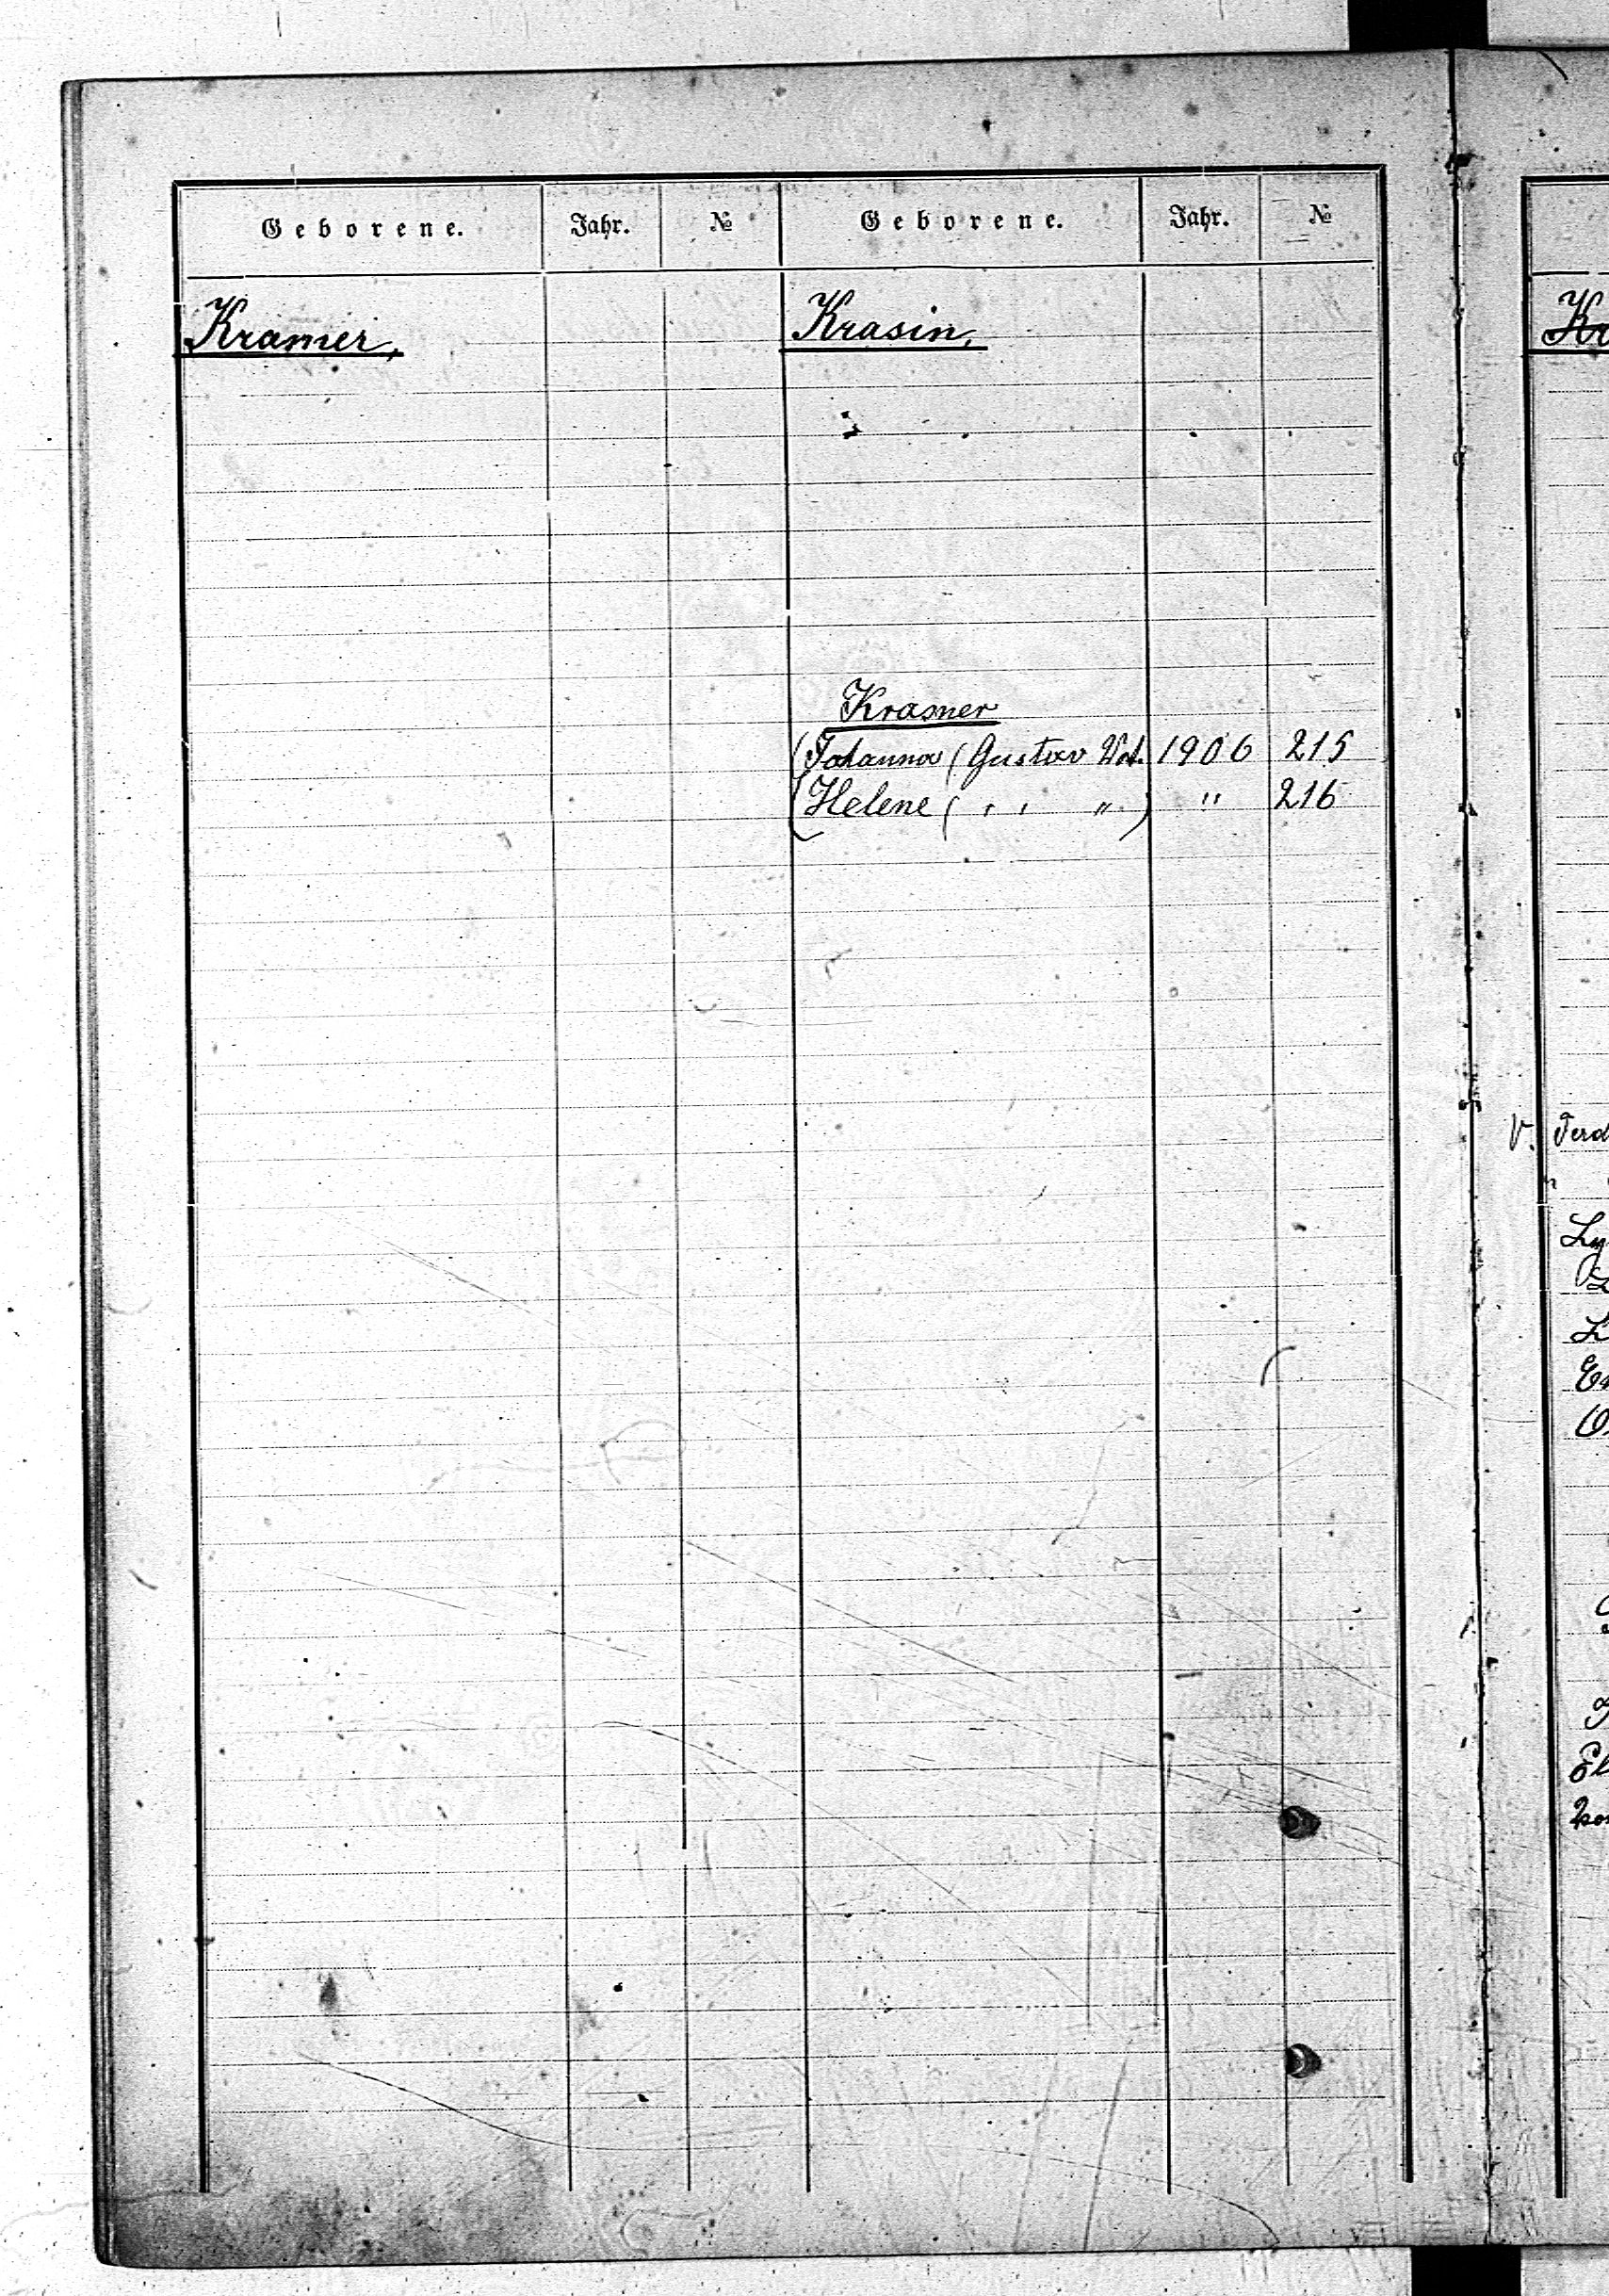 Geborene. Jahr. № Geborene. Jahr. №
Kramer,
Krasin,
Krasner
(Johanna (Gustav 1906 215
(Helene ( " " " ) " 216
Kr
V. Ferd
"
Ly
L
En
El